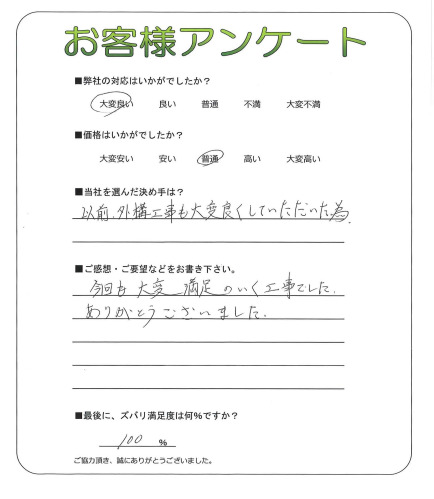 お客様アンケート
■弊社の対応はいかがでしたか？
大変良い 良い 普通 不満 大変不満
■価格はいかがでしたか？
大変安い 安い 普通 高い 大変高い
■当社を選んだ決め手は？
以前、外構工事も大変良くしていただいた為。
■ご感想・ご要望などをお書き下さい。
今回も大変満足のいく工事でした。
ありがとうございました。
■最後に、ズバリ満足度は何％ですか？
100 ％
ご協力頂き、誠にありがとうございました。